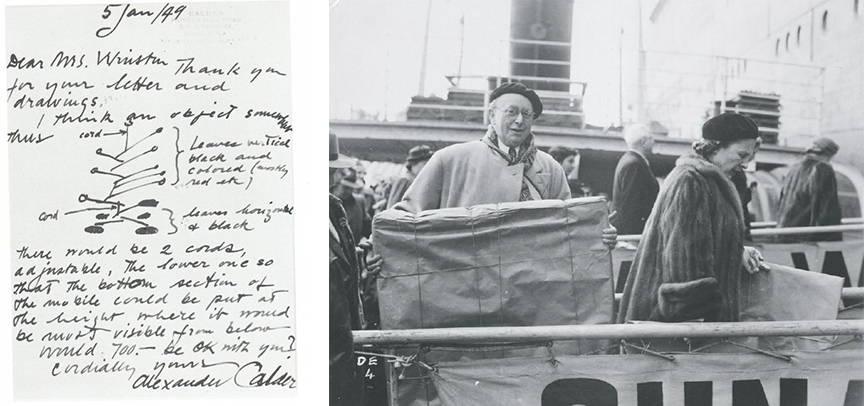 5 Jan/49
Dear Mrs. Winston Thank you
for your letter and
drawings.
I think an object somewhat
thus
cord
Leaves vertical
black and
colored (mostly
red etc)
cord
leaves horizontal
& black
there would be 2 cords,
adjustable, The lower one so
that the bottom section of
the mobile could be put at
the height where it would
be most visible from below
Would 700.— be OK with you?
Cordially yours
Alexander Calder
DE
4
CUNA